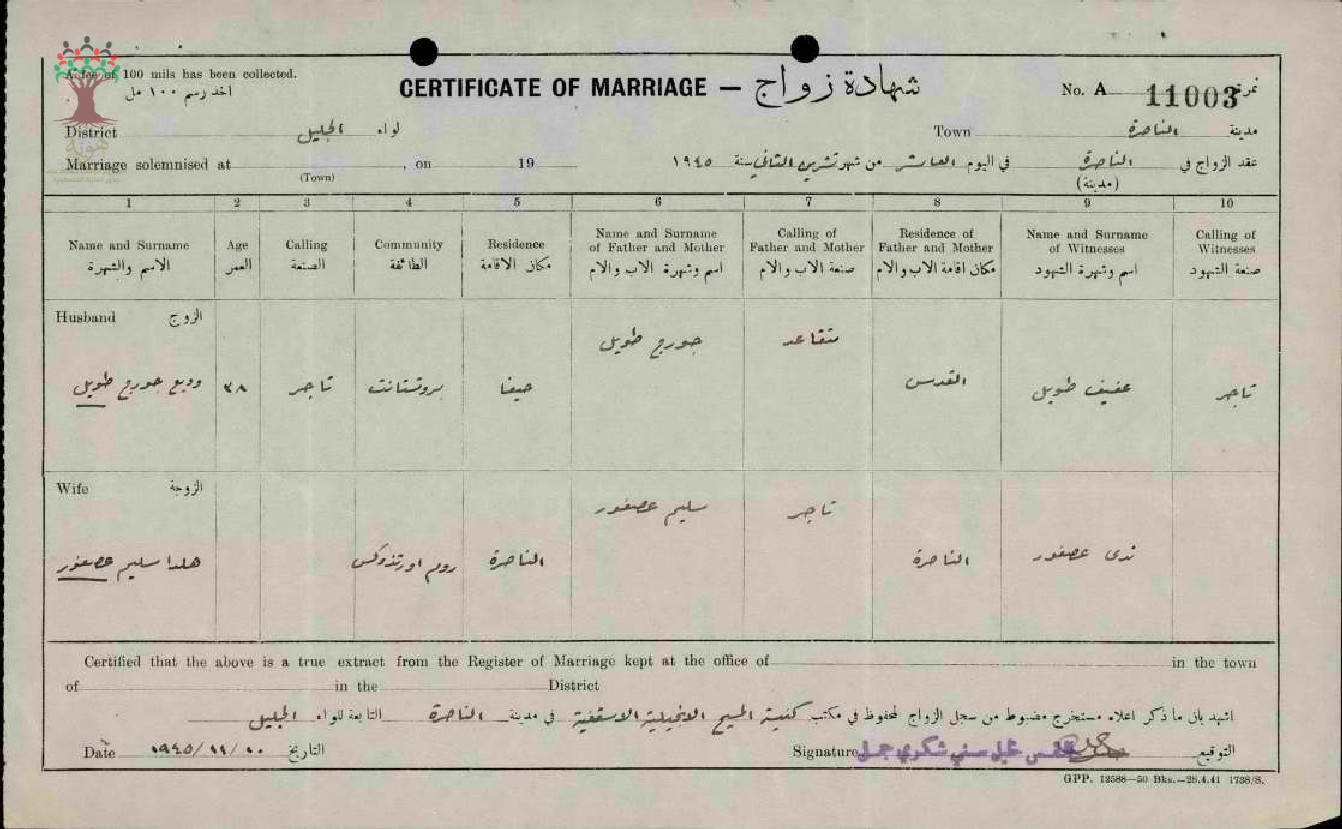 A fee of 100 mils has been collected.
اخذ رسم ١٠٠ مل
CERTIFICATE OF MARRIAGE — شهادة زواج
No. A 11003 نمرة
District الجليل لواء
Town الناصرة مدينة
Marriage solemnised at , on 19
(Town)
عقد الزواج في الناصرة في اليوم العاشر من شهر تشرين الثاني سنة ١٩٤٥
(مدينة)
1 2 3 4 5 6 7 8 9 10
Name and Surname
الاسم والشهرة
Age
العمر
Calling
الصنعة
Community
الطائفة
Residence
مكان الاقامة
Name and Surname
of Father and Mother
اسم وشهرة الاب والام
Calling of
Father and Mother
صنعة الاب والام
Residence of
Father and Mother
مكان اقامة الاب والام
Name and Surname
of Witnesses
اسم وشهرة الشهود
Calling of
Witnesses
صنعة الشهود
Husband الزوج
وديع جورج طويل
٣٨
تاجر
بروتستانت
حيفا
جورج طويل
متقاعد
القدس
عفيف طويل
تاجر
Wife الزوجة
هلدا سليم عصفور
روم اورثذوكس
الناصرة
سليم عصفور
تاجر
الناصرة
ندى عصفور
Certified that the above is a true extract from the Register of Marriage kept at the office of in the town
of in the District
اشهد بان ما ذكر اعلاه مستخرج مضبوط من سجل الزواج المحفوظ في مكتب كنيسة المسيح الانجيلية الاسقفية في مدينة الناصرة التابعة للواء الجليل
Date ١٩٤٥/١١/١٠ التاريخ
Signature التوقيع
GPP. 12588—50 Bks.—28.4.41 1738/S.